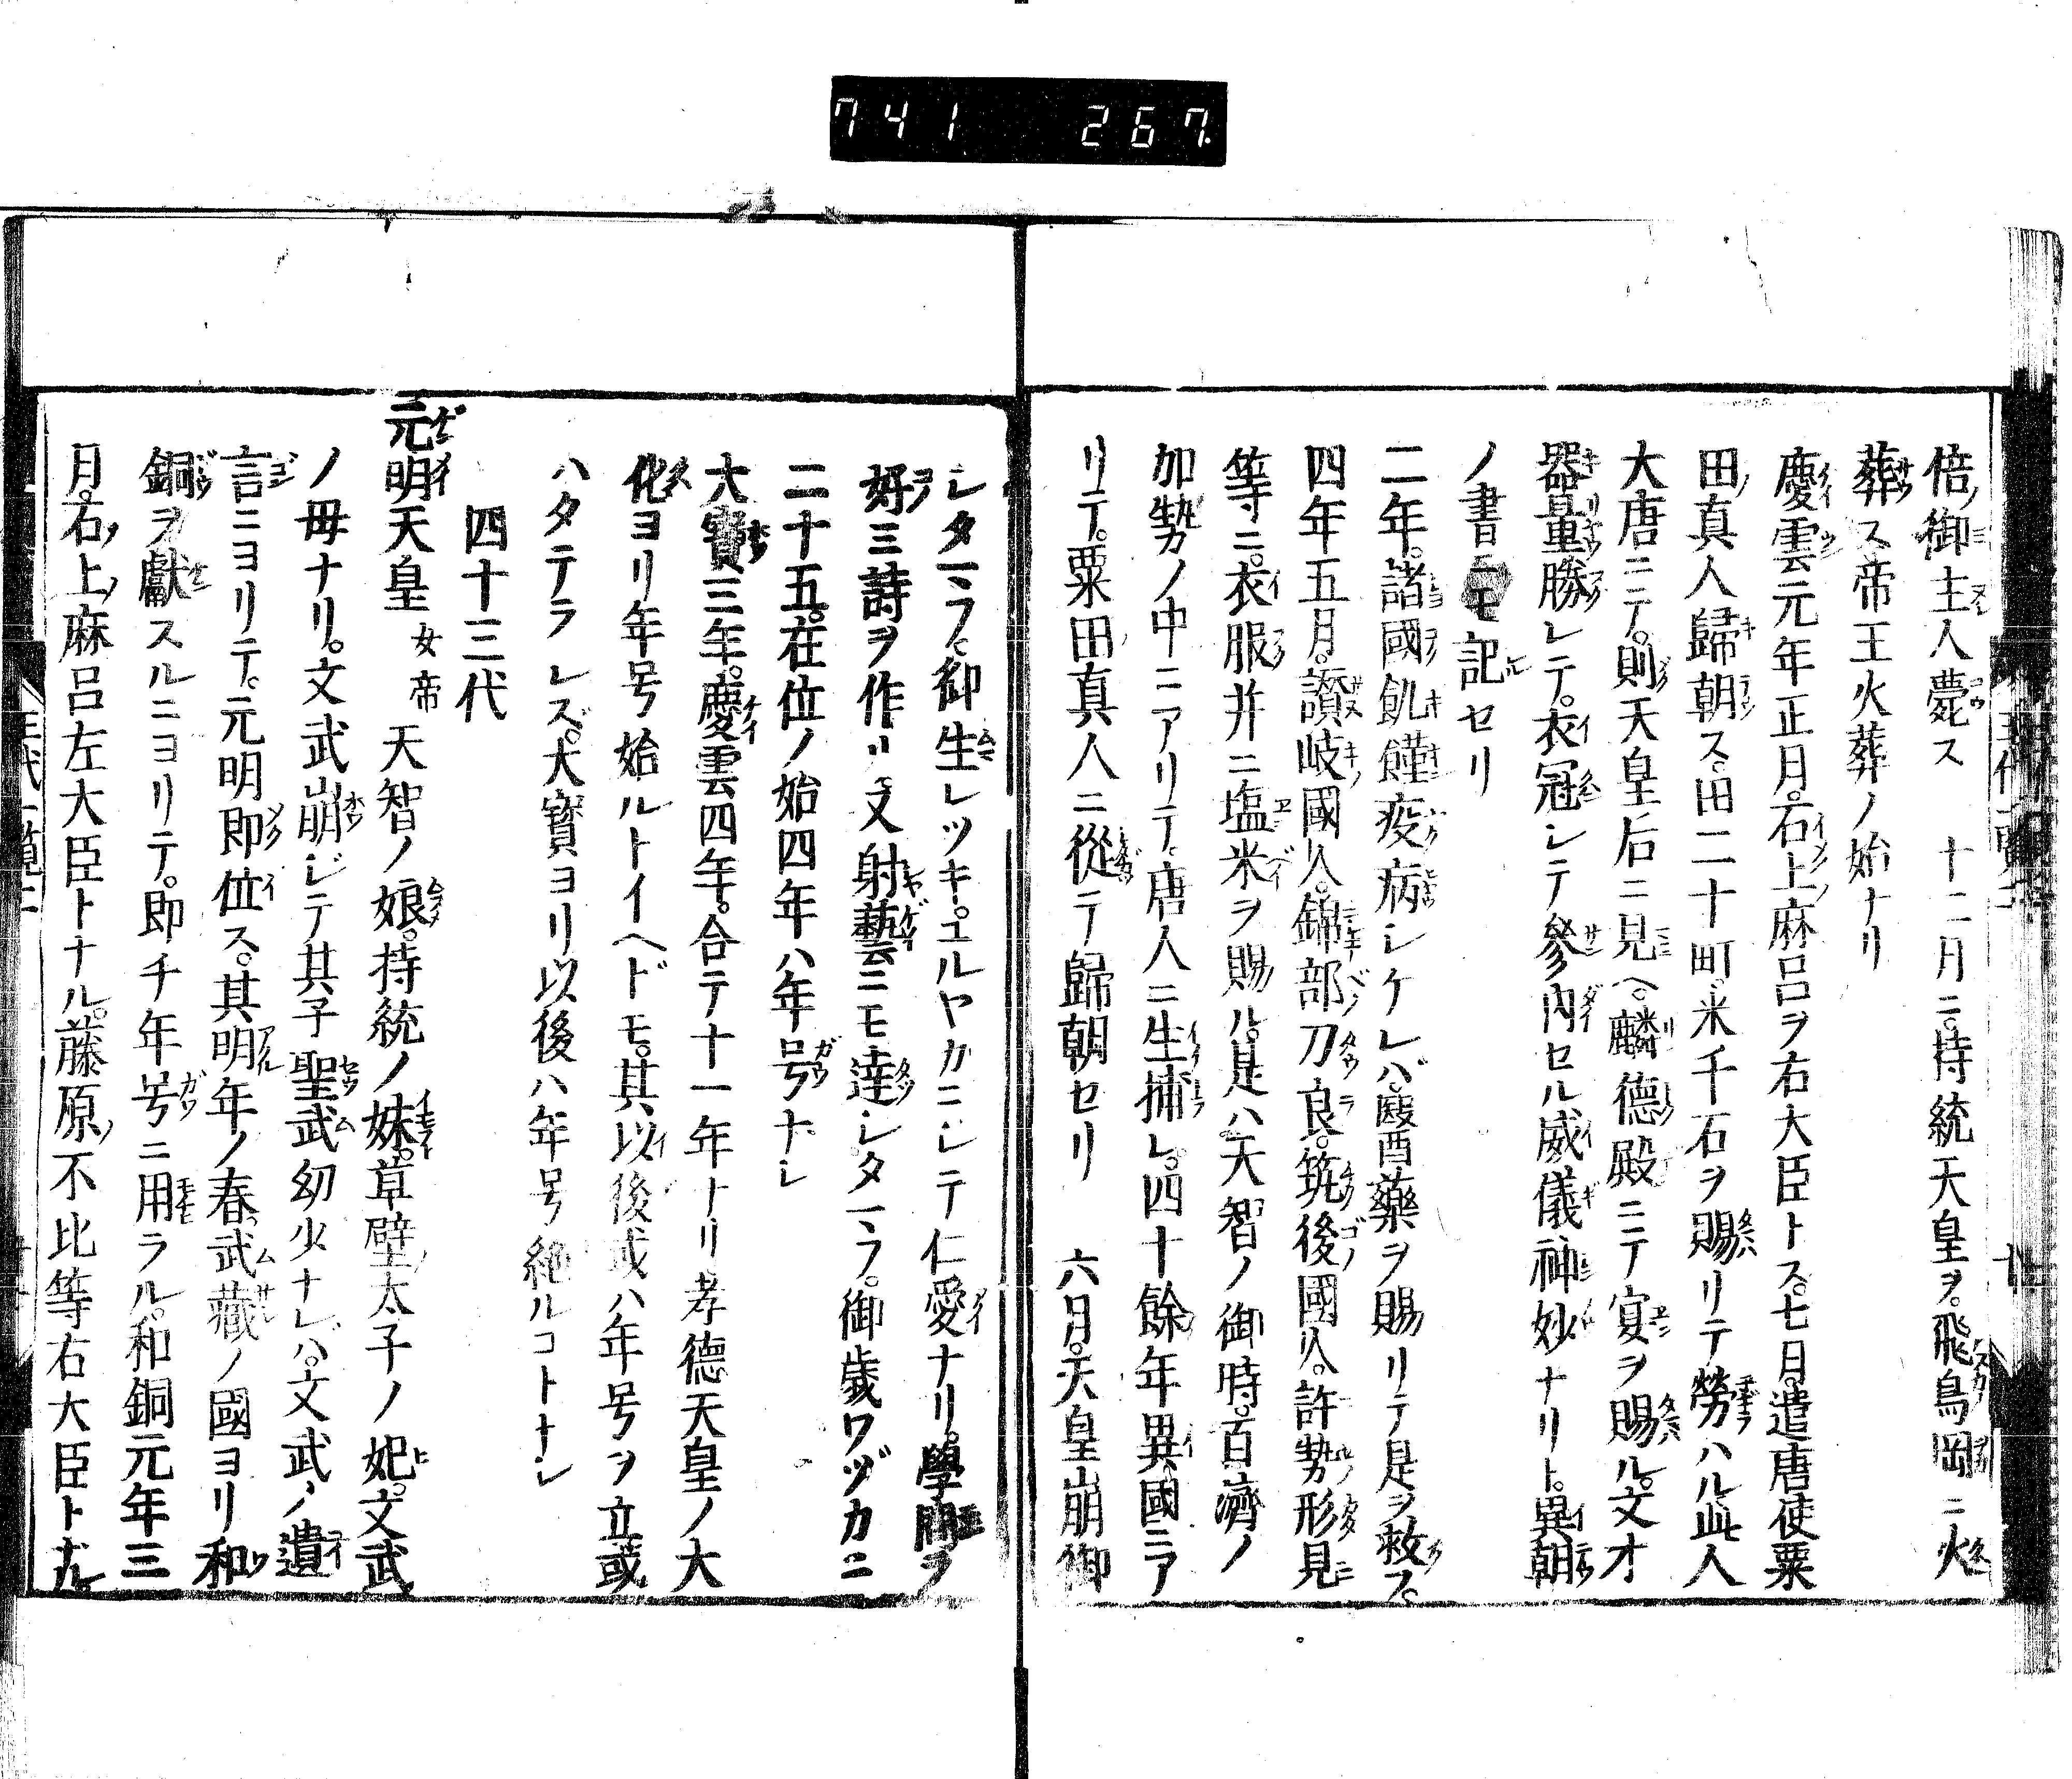 741 267
倍御主人薨ス 十二月ニ。持統天皇ヲ。飛鳥岡ニ火
葬ス。帝王火葬ノ始ナリ
慶雲元年正月。石上麻呂ヲ右大臣トス。七月。遣唐使粟
田真人歸朝ス。田二十町。米千石ヲ賜リテ勞ハル。此人
大唐ニテ。則天皇后ニ見ヘ。麟德殿ニテ宴ヲ賜ル。文才
器量勝レテ。衣冠シテ參内セル威儀。神妙ナリト。異朝
ノ書ニモ記セリ
二年。諸國飢饉疫病シケレバ。醫藥ヲ賜リテ是ヲ救フ。
四年五月。讃岐國人。錦部刀良。筑後國人。許勢形見
等ニ。衣服并ニ塩米ヲ賜ル。是ハ天智ノ御時。百濟ノ
加勢ノ中ニアリテ。唐人ニ生捕レ。四十餘年異國ニア
リテ。粟田真人ニ從テ歸朝セリ 六月。天皇崩御
シタマフ。御生レツキ。ユルヤカニシテ仁愛ナリ。學問ヲ
好ミ詩ヲ作リ又射藝ニモ達シタマフ。御歲ワヅカニ
二十五。在位ノ始四年ハ年号ナシ
大寳三年。慶雲四年。合テ十一年ナリ孝德天皇ノ大
化ヨリ年号始ルトイヘドモ。其以後或ハ年号ヲ立或
ハタテラレズ。大寳ヨリ以後ハ年号絶ルコトナシ
四十三代
元明天皇 女帝 天智ノ娘。持統ノ妹。草壁太子ノ妃。文武
ノ母ナリ。文武崩ジテ其子聖武幼少ナレバ。文武ノ遺
言ニヨリテ。元明即位ス。其明年ノ春。武藏ノ國ヨリ和
銅ヲ獻スルニヨリテ。即チ年号ニ用ラル。和銅元年三
月。石上麻呂左大臣トナル。藤原不比等右大臣トナル。